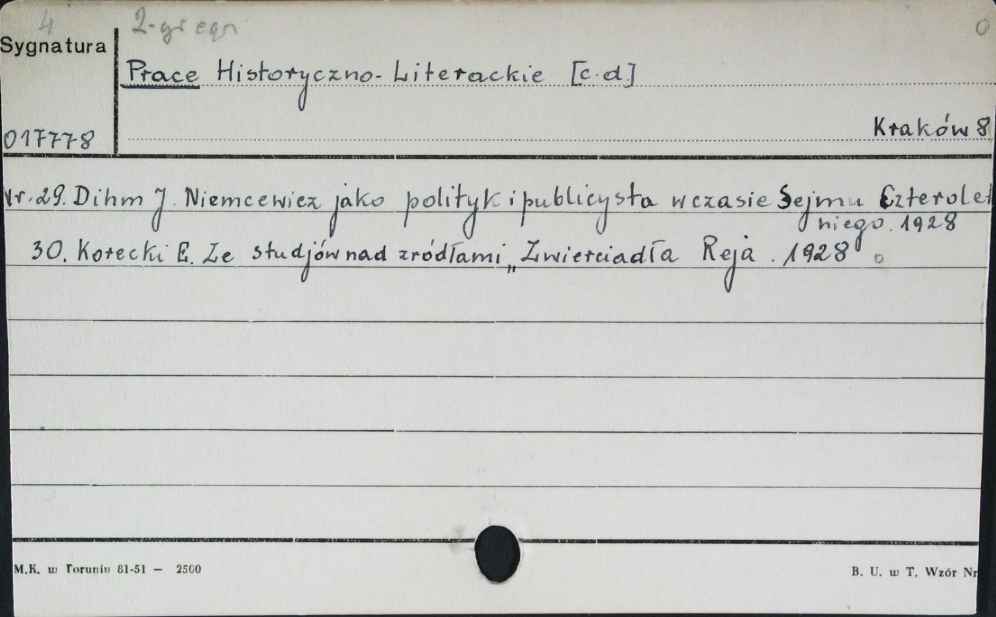 4 2-gi egz 0
Sygnatura
Prace Historyczno-Literackie [c.d.]
017778 Kraków 8
Nr. 29. Dihm J. Niemcewicz jako polityk i publicysta w czasie Sejmu Czterolet
niego. 1928
30. Kotecki E. Ze studjów nad zródłami „Zwierciadła Reja. 1928
M.K. w Toruniu 81-51 — 2500 B. U. w T. Wzór Nr